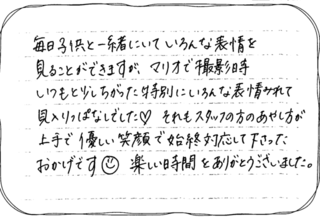 毎日子供と一緒にいていろんな表情を
見ることができますが、マリオで撮影時
いつもと少しちがった特別にいろんな表情がみれて
見入りっぱなしでした♡ それもスタッフの方のあやし方が
上手で優しい笑顔で始終対応して下さった
おかげです☺ 楽しい時間をありがとうございました。